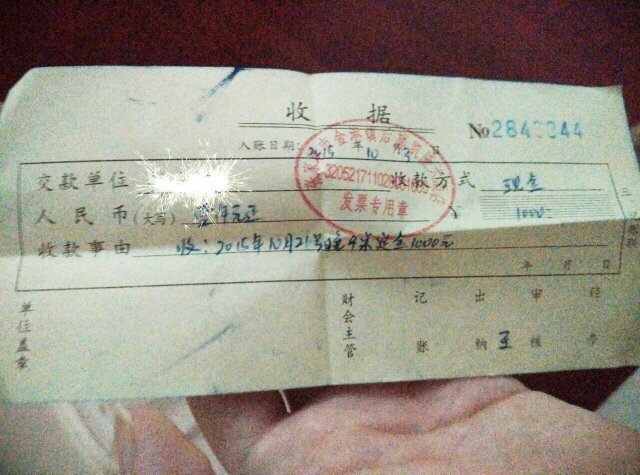 收 据
No 284
入账日期: 2015 年 10 月 日
交款单位 收款方式 现金
人民币(大写) 壹仟元正 ¥ 1000
收款事由 收:2015年10月21号晚 定金1000元
年 月 日
单位盖章 财会主管 记账 出纳 王 审核 经办
发票专用章